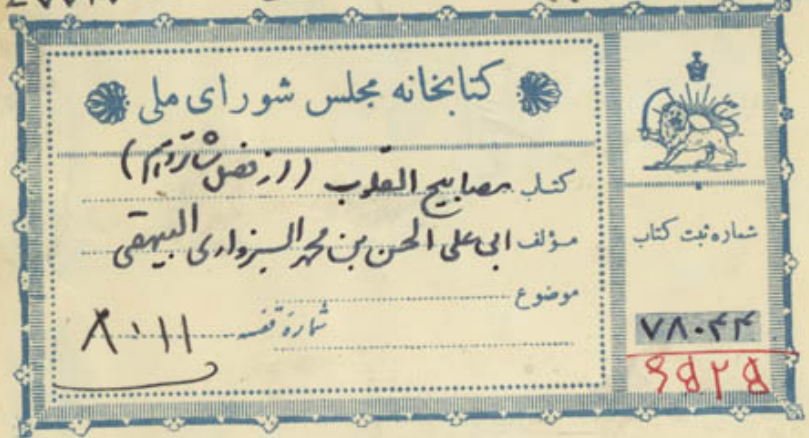 کتابخانه مجلس شورای ملی
کتاب مصابیح القلوب (از فصل شانزدهم)
مؤلف ابی علی الحسن بن محمد السبزواری البیهقی
موضوع
شماره قفسه ۸۰۱۱
شماره ثبت کتاب
۷۸۰۴۴